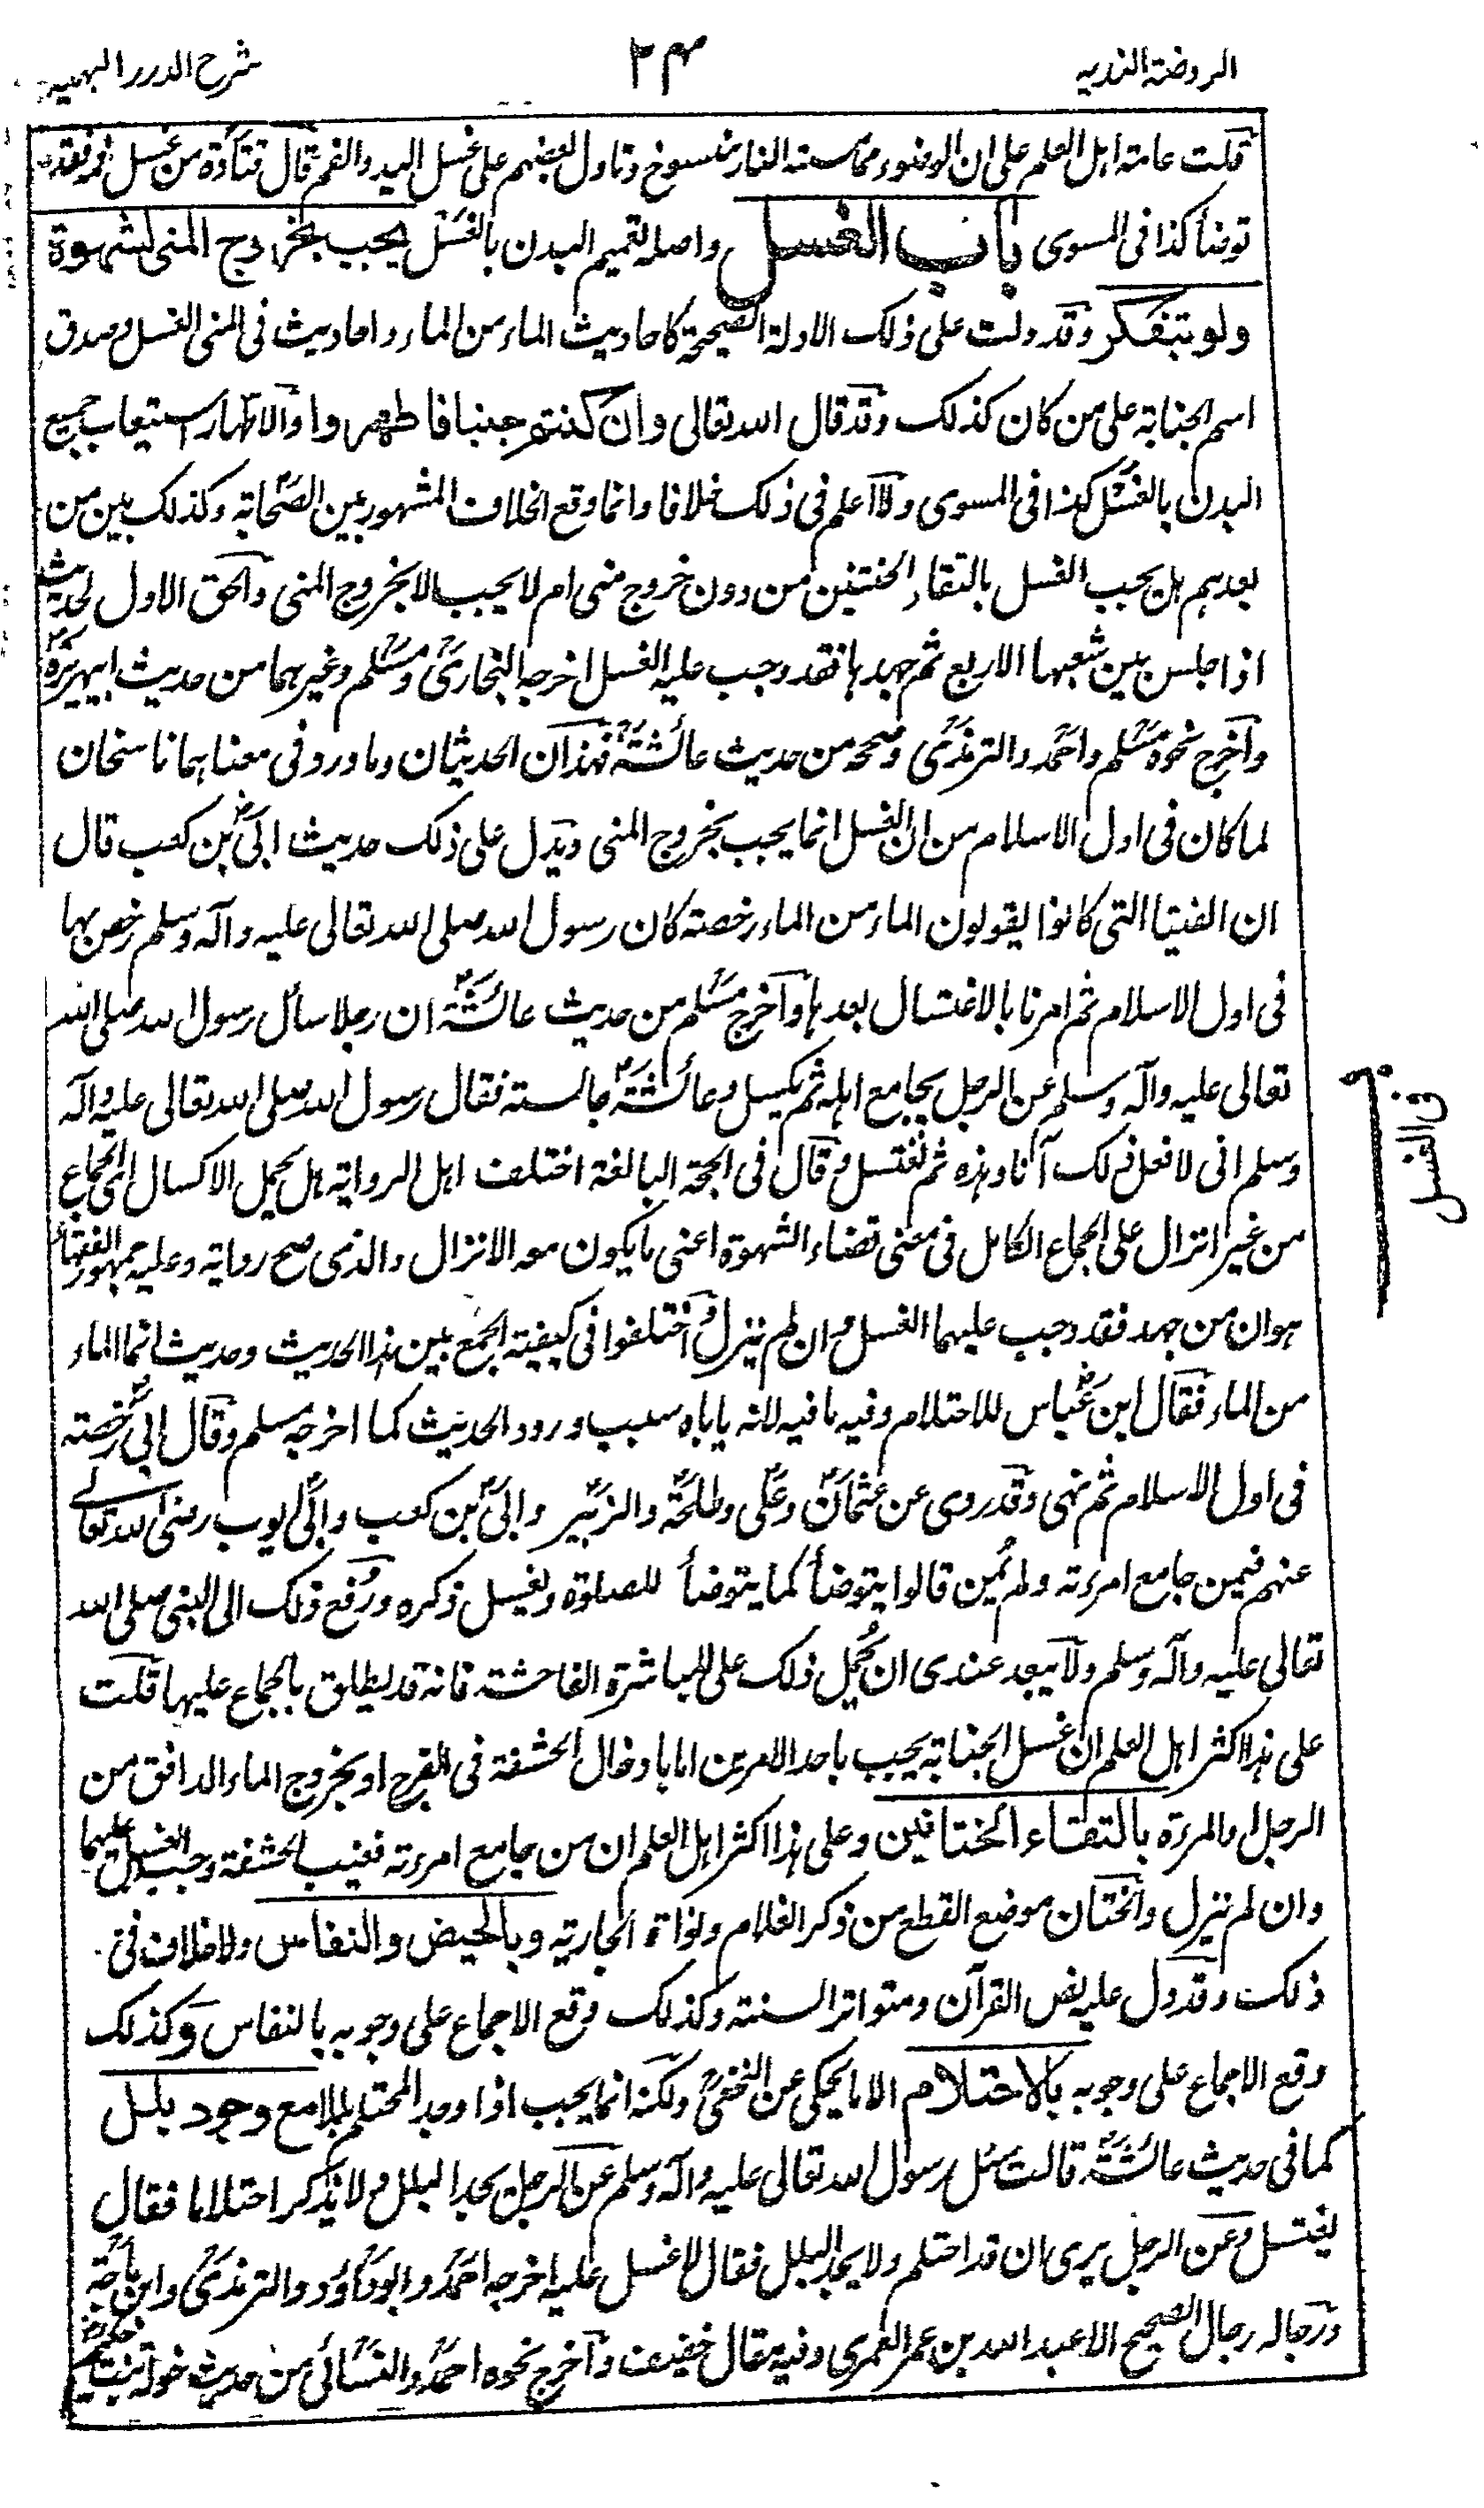 الروضة الندية
٣٤
شرح الدرر البهية
قلت عامة اهل العلم على ان الوضوء مما مسته النار منسوخ وتاول بعضهم على غسل اليد والفم قال قتادة من غسل فمه فقد
توضأ كذا فى المسوى باب الغسل واصله تعميم البدن بالغسل يجب بخروج المنى لشهوة
ولو بتفكر وقد دلت على ذلك الادلة الصحيحة كاحاديث الماء من الماء واحاديث فى المنى الغسل وصدق
اسم الجنابة على من كان كذلك وقد قال الله تعالى وان كنتم جنبا فاطهروا والاطهار استيعاب جميع
البدن بالغسل كذا فى المسوى ولا اعلم فى ذلك خلافا وانما وقع الخلاف المشهور بين الصحابة وكذلك بين من
بعدهم هل يجب الغسل بالتقاء الختنين من دون خروج منى ام لا يجب الا بخروج المنى والحق الاول لحديث
اذا جلس بين شعبها الاربع ثم جهدها فقد وجب عليه الغسل اخرجه البخارى ومسلم وغيرهما من حديث ابى هريرة
واخرج نحوه مسلم واحمد والترمذى وصححه من حديث عائشة فهذان الحديثان وما ورد فى معناهما ناسخان
لما كان فى اول الاسلام من ان الغسل انما يجب بخروج المنى ويدل على ذلك حديث ابى بن كعب قال
ان الفتيا التى كانوا يقولون الماء من الماء رخصة كان رسول الله صلى الله تعالى عليه وآله وسلم رخص بها
فى اول الاسلام ثم امرنا بالاغتسال بعدها واخرج مسلم من حديث عائشة ان رجلا سأل رسول الله صلى الله
تعالى عليه وآله وسلم عن الرجل يجامع اهله ثم يكسل وعائشة جالسة فقال رسول الله صلى الله تعالى عليه وآله
وسلم انى لافعل ذلك انا وهذه ثم نغتسل وقال فى الحجة البالغة اختلف اهل الرواية هل يحمل الاكسال اى الجماع
من غير انزال على الجماع الكامل فى معنى قضاء الشهوة اعنى ما يكون معه الانزال والذى صح رواية وعليه جمهور الفقهاء
هو ان من جهد فقد وجب عليهما الغسل وان لم ينزل واختلفوا فى كيفية الجمع بين هذا الحديث وحديث انما الماء
من الماء فقال ابن عباس للاحتلام وفيه ما فيه لانه ياباه سبب ورود الحديث كما اخرجه مسلم وقال ابى رخصة
فى اول الاسلام ثم نهى وقد روى عن عثمان وعلى وطلحة والزبير وابى بن كعب وابى ايوب رضى الله تعالى
عنهم فيمن جامع امرءته ولم يمن قالوا يتوضأ كما يتوضأ للصلوة ويغسل ذكره ورفع ذلك الى النبى صلى الله
تعالى عليه وآله وسلم ولا يبعد عندى ان يحمل ذلك على المباشرة الفاحشة فانه قد يطلق الجماع عليها قلت
على هذا اكثر اهل العلم ان غسل الجنابة يجب باحد الامرين اما بادخال الحشفة فى الفرج او بخروج الماء الدافق من
الرجل او المرءة بالتقاء الختانين وعلى هذا اكثر اهل العلم ان من جامع امرءته فغيب الحشفة وجب الغسل عليهما
وان لم ينزل والختان موضع القطع من ذكر الغلام ونواة الجارية وبالحيض والنفاس ولا خلاف فى
ذلك وقد دل عليه نص القرآن ومتواتر السنة وكذلك وقع الاجماع على وجوبه بالنفاس وكذلك
وقع الاجماع على وجوبه بالاحتلام الا ما يحكى عن النخعى ولكنه انما يجب اذا وجد المحتلم بللا مع وجود بلل
كما فى حديث عائشة قالت سئل رسول الله تعالى عليه وآله وسلم عن الرجل يجد البلل ولا يذكر احتلاما فقال
يغتسل وعن الرجل يرى ان قد احتلم ولا يجد البلل فقال لا غسل عليه اخرجه احمد وابو داؤد والترمذى وابن ماجة
ورجاله رجال الصحيح الا عبد الله بن عمر العمرى وفيه مقال خفيف واخرج نحوه احمد والنسائى من حديث خولة بنت حكيم
ف الغسل